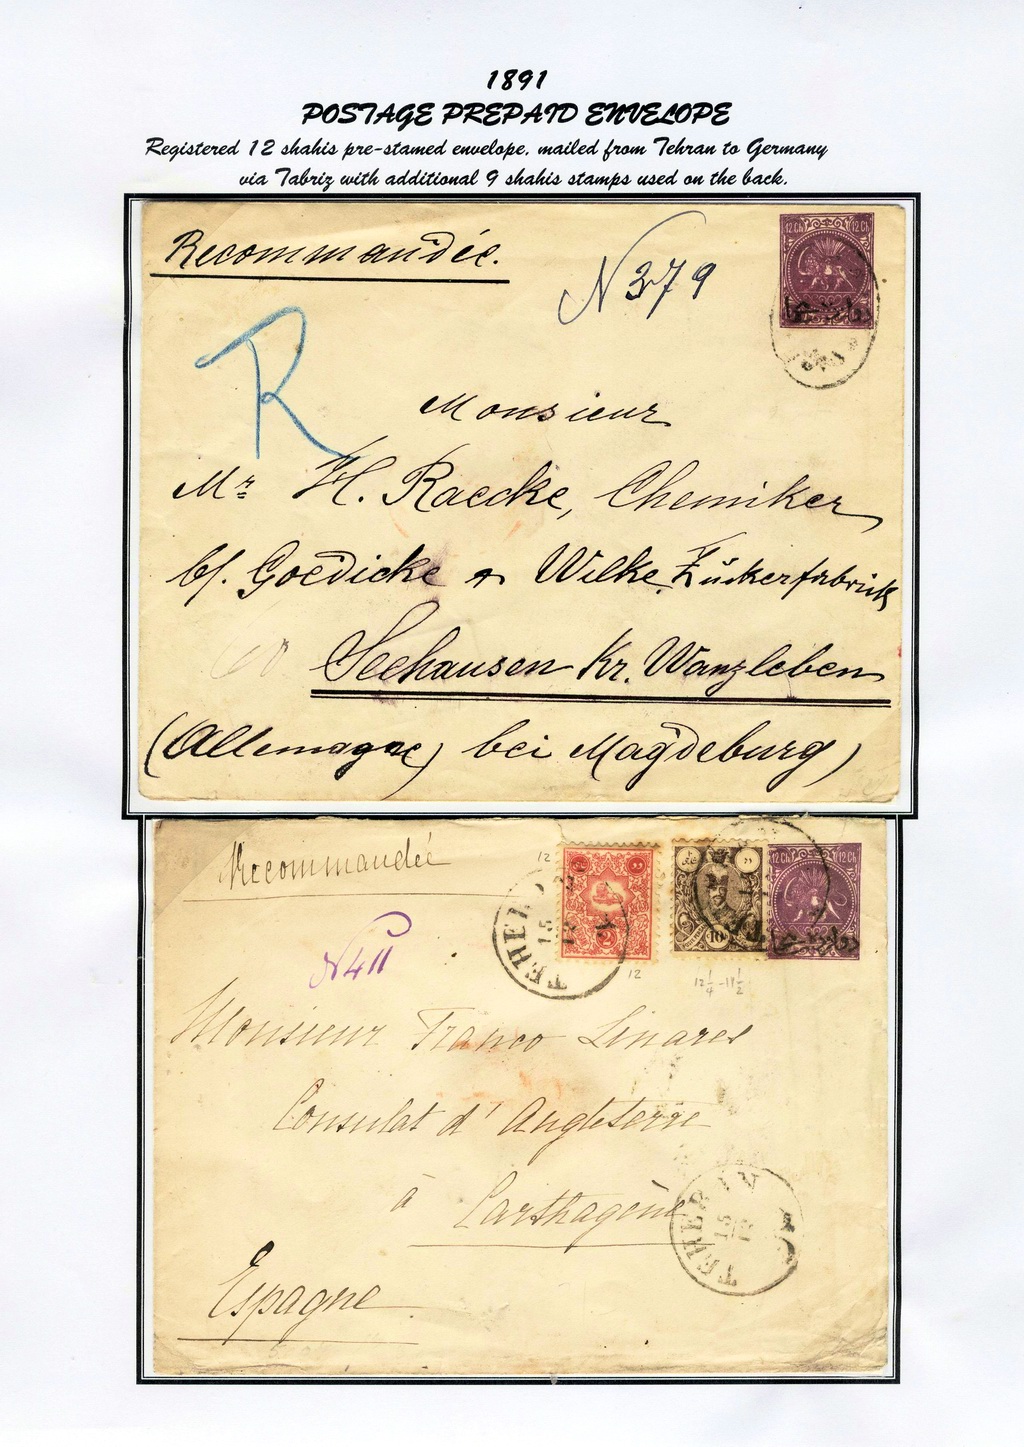 1891
POSTAGE PREPAID ENVELOPE
Registered 12 shahis pre-stamed envelope, mailed from Tehran to Germany
via Tabriz with additional 9 shahis stamps used on the back.
Recommandée.
N 379
12 Ch 12 Ch
R
Monsieur
Mr H. Raecke, Chemiker
b/. Goedicke & Wilke, Zuckerfabrik
Seehausen Kr. Wanzleben
(Allemagne) bei Magdeburg)
Recommandée
12
2
10
12 Ch 12 Ch
TEHERAN
15
12
N 411
12
12¼-11½
Monsieur Franco Linares
Consulat d'Angleterre
à Carthagène
TEHERAN
15
12
Espagne